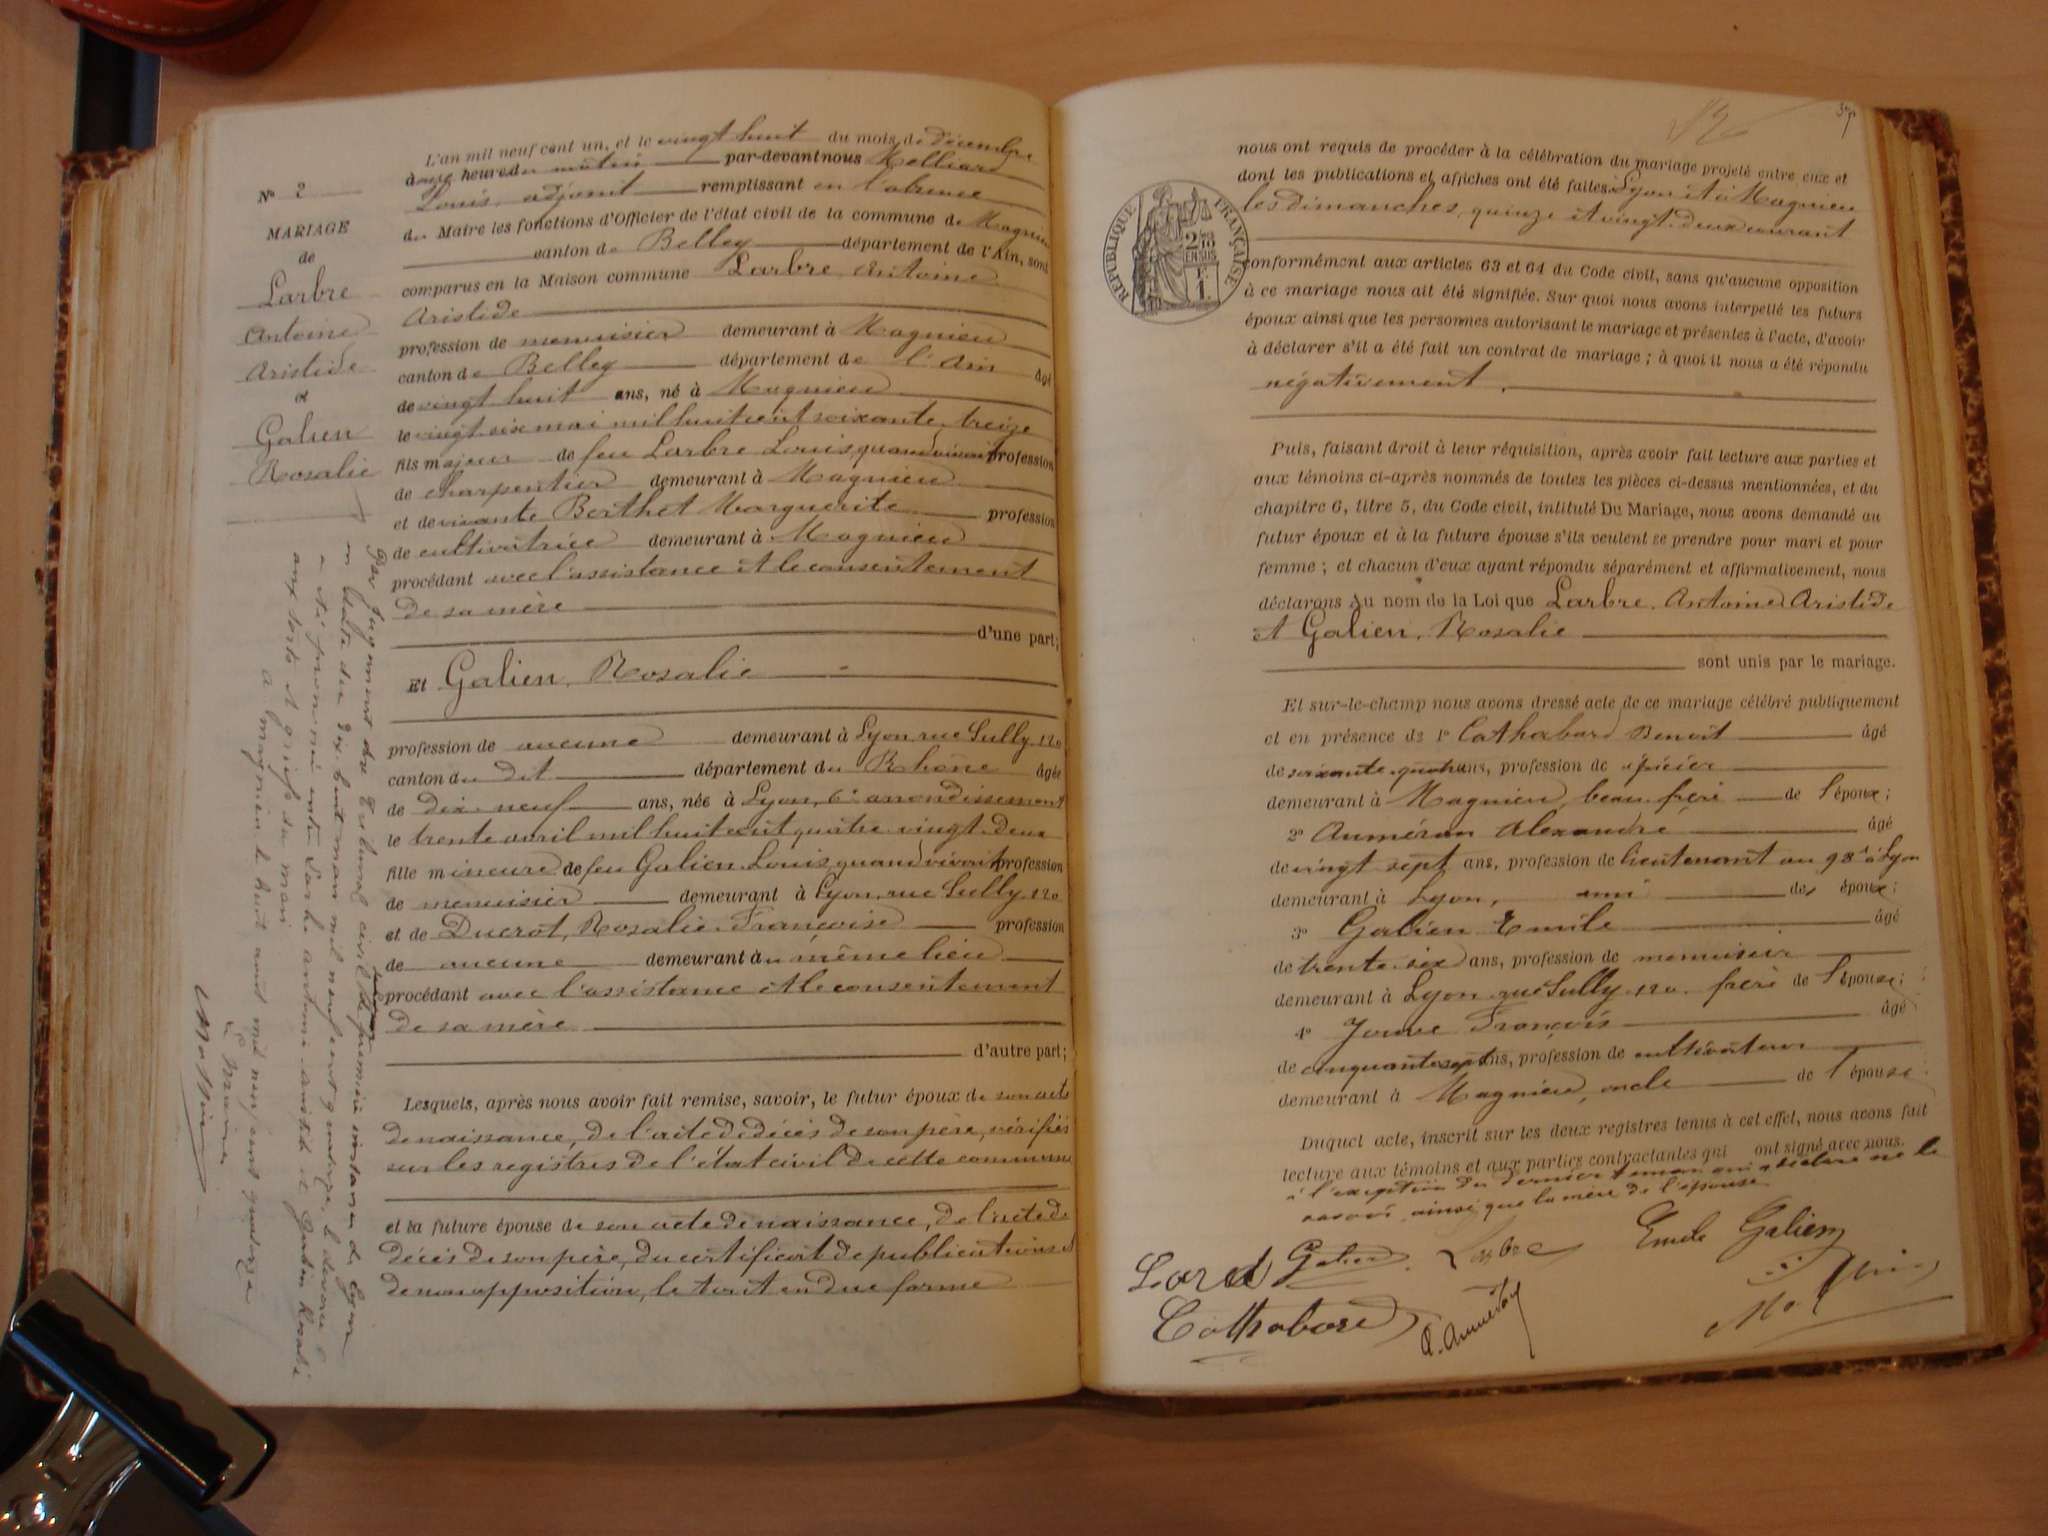 N° 2
MARIAGE
de
Larbre
Antoine
Aristide
et
Galien
Rosalie
L'an mil neuf cent un, et le vingt huit du mois de décembre
heure du matin par-devant nous
Louis, adjoint remplissant en l'absence
du Maire les fonctions d'Officier de l'état civil de la commune de Magnieu
canton de Belley département de l'Ain, sont
comparus en la Maison commune Larbre Antoine
Aristide
profession de menuisier demeurant à Magnieu
canton de Belley département de l'Ain âgé
de vingt huit ans, né à Magnieu
le vingt six mai mil huit cent soixante treize
fils majeur de feu Larbre Louis, quand vivait profession
de charpentier demeurant à Magnieu
et de vivante Berthet Marguerite profession
de cultivatrice demeurant à Magnieu
procédant avec l'assistance et le consentement
de sa mère
d'une part;
Et Galien, Rosalie
profession de aucune demeurant à Lyon, rue Sully 120
canton du dit département du Rhône âgée
de dix-neuf ans, née à Lyon, 6e arrondissement
le trente avril mil huit cent quatre-vingt-deux
fille mineure de feu Galien Louis quand vivait profession
de menuisier demeurant à Lyon, rue Sully 120
et de Ducrot, Rosalie Françoise profession
de aucune demeurant au même lieu
procédant avec l'assistance et le consentement
de sa mère
d'autre part;
Lesquels, après nous avoir fait remise, savoir, le futur époux de son acte
de naissance, de l'acte de décès de son père, vérifiés
sur les registres de l'état civil de cette commune
et la future épouse de son acte de naissance, de l'acte de
décès de son père, du certificat de publications et
de non opposition, le tout en due forme
Par jugement du Tribunal civil de première instance de Lyon
en date du dix huit mars mil neuf cent quatorze, le divorce
a été prononcé entre Larbre Antoine Aristide et Galien Rosalie
aux torts et griefs du mari
à Magnieu le huit août mil neuf cent quatorze
Le Maire
37
RÉPUBLIQUE FRANÇAISE
nous ont requis de procéder à la célébration du mariage projeté entre eux et
dont les publications et affiches ont été faites à Lyon et à Magnieu
les dimanches quinze et vingt-deux courant
conformément aux articles 63 et 64 du Code civil, sans qu'aucune opposition
à ce mariage nous ait été signifiée. Sur quoi nous avons interpellé les futurs
époux ainsi que les personnes autorisant le mariage et présentes à l'acte, d'avoir
à déclarer s'il a été fait un contrat de mariage ; à quoi il nous a été répondu
négativement.
Puis, faisant droit à leur réquisition, après avoir fait lecture aux parties et
aux témoins ci-après nommés de toutes les pièces ci-dessus mentionnées, et du
chapitre 6, titre 5, du Code civil, intitulé Du Mariage, nous avons demandé au
futur époux et à la future épouse s'ils veulent se prendre pour mari et pour
femme ; et chacun d'eux ayant répondu séparément et affirmativement, nous
déclarons Au nom de la Loi que Larbre Antoine Aristide
et Galien, Rosalie
sont unis par le mariage.
Et sur-le-champ nous avons dressé acte de ce mariage célébré publiquement
et en présence de 1° Cathabard Benoit âgé
de soixante quatre ans, profession de épicier
demeurant à Magnieu, beau frère de l'époux;
2° Auméran Alexandre âgé
de vingt sept ans, profession de lieutenant au 98e à Lyon
demeurant à Lyon, ami des époux;
3° Galien Emile âgé
de trente-six ans, profession de menuisier
demeurant à Lyon rue Sully 120 frère de l'épouse;
4° Jouve François âgé
de cinquante sept ans, profession de cultivateur
demeurant à Magnieu, oncle de l'épouse
Duquel acte, inscrit sur les deux registres tenus à cet effet, nous avons fait
lecture aux témoins et aux parties contractantes qui ont signé avec nous.
à l'exception du dernier témoin qui a déclaré ne le
savoir, ainsi que la mère de l'épouse
Galien Larbre Emile Galien
Cathabard A. Auméran